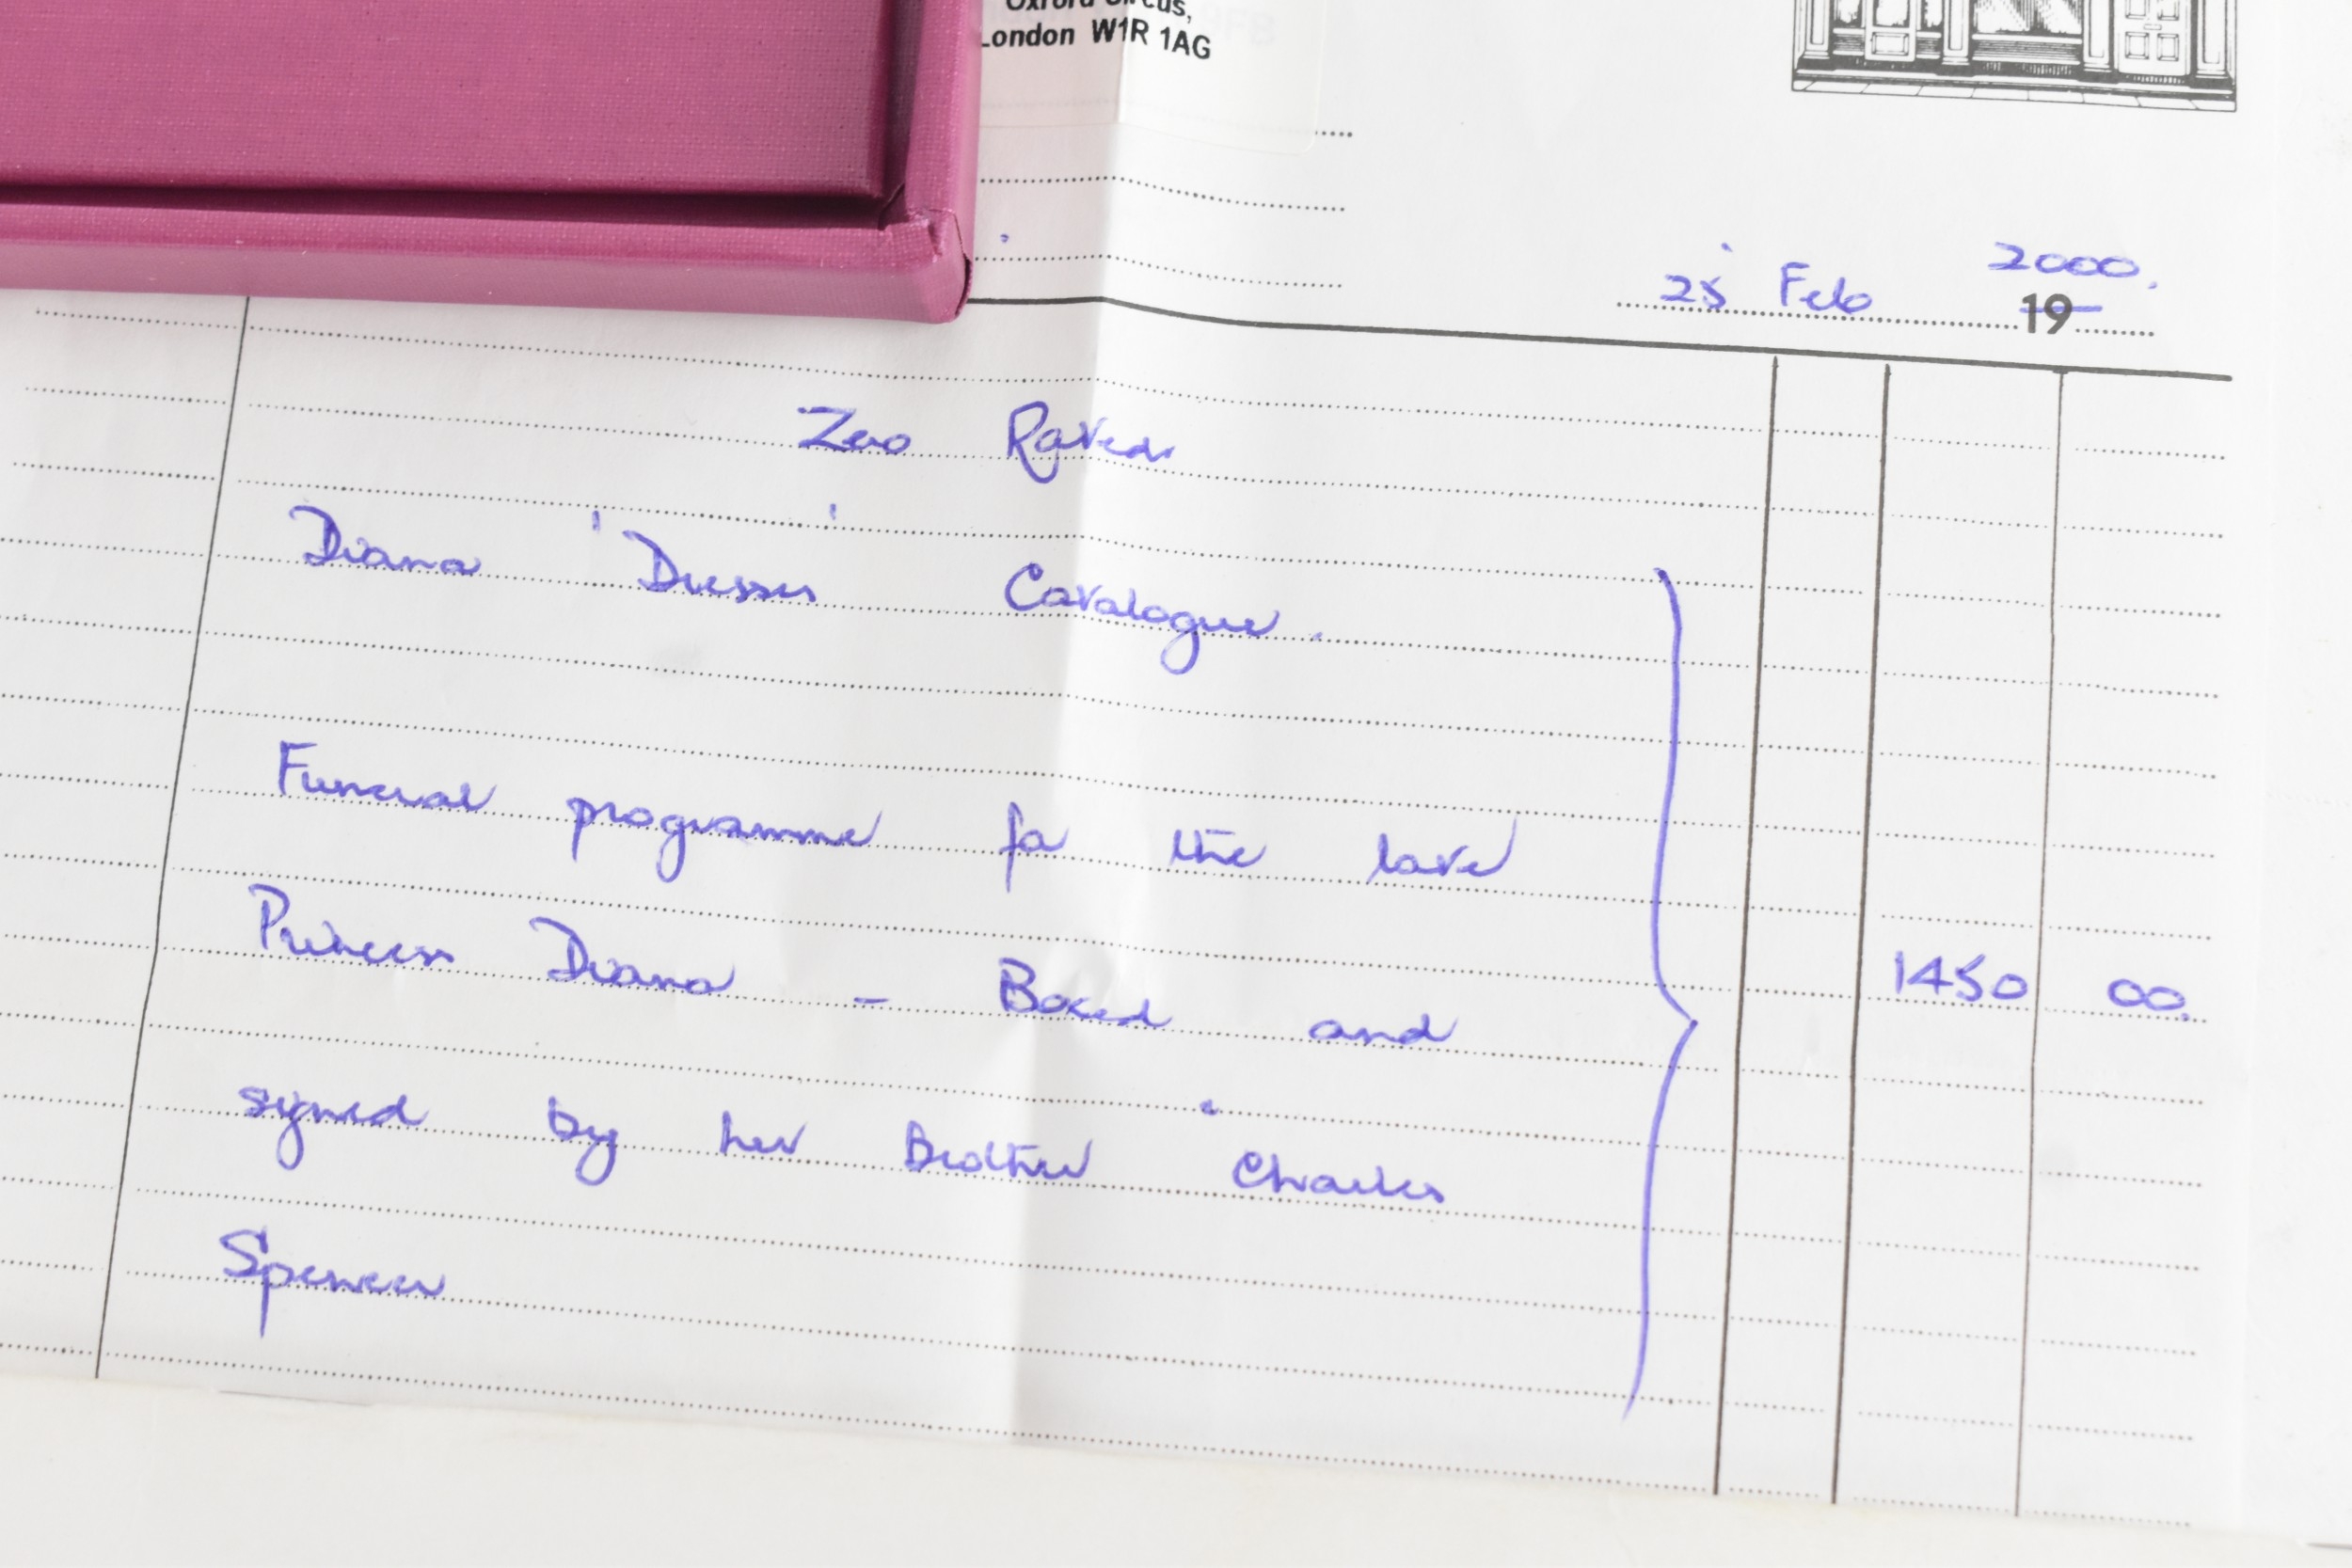 Oxford Circus,
London W1R 1AG
25 Feb 2000.
19
Zero Rated
Diana 'Dresses' Catalogue.
Funeral programme for the late
Princess Diana - Boxed and
1450 00.
signed by her Brother Charles
Spencer